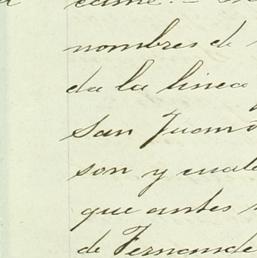 nombres de
da la linea
San Juan
son y cuale
que antes
de Fernande